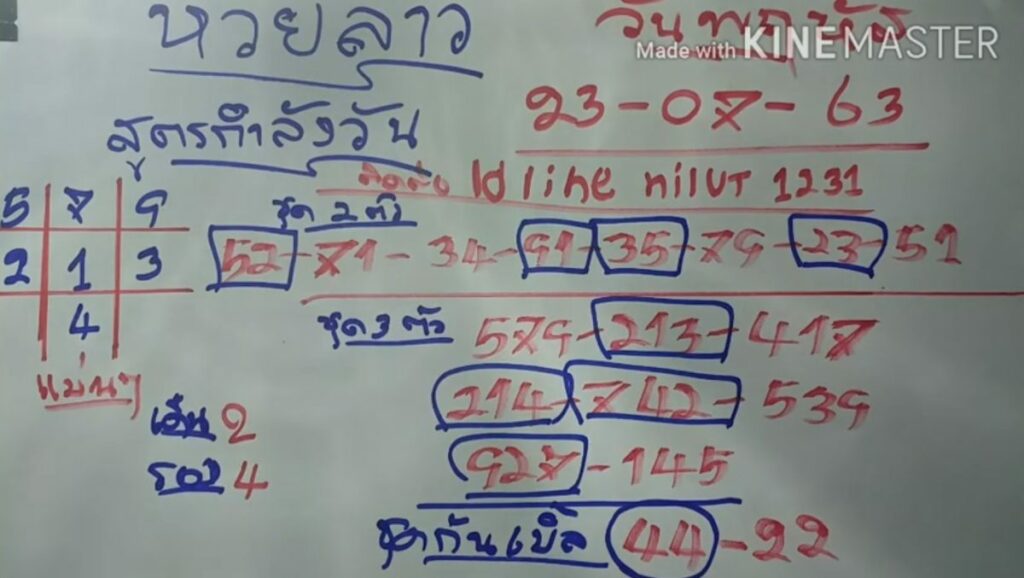 หวยลาว วันพฤหัส
Made with KINEMASTER
23-07-63
สูตรกำลังวัน
ติดต่อ Id line nilut 1231
5 7 9
ชุด 2 ตัว
2 1 3
52-71-34-91-35-79-23-51
4
ชุด 3 ตัว 579-213-417
แม่นๆ
214-742-539
เน้น 2
927-145
รอง 4
ชุดกันเบิ้ล 44-22